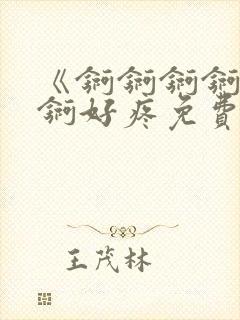 《锕锕锕锕
锕好疼免費
王茂林